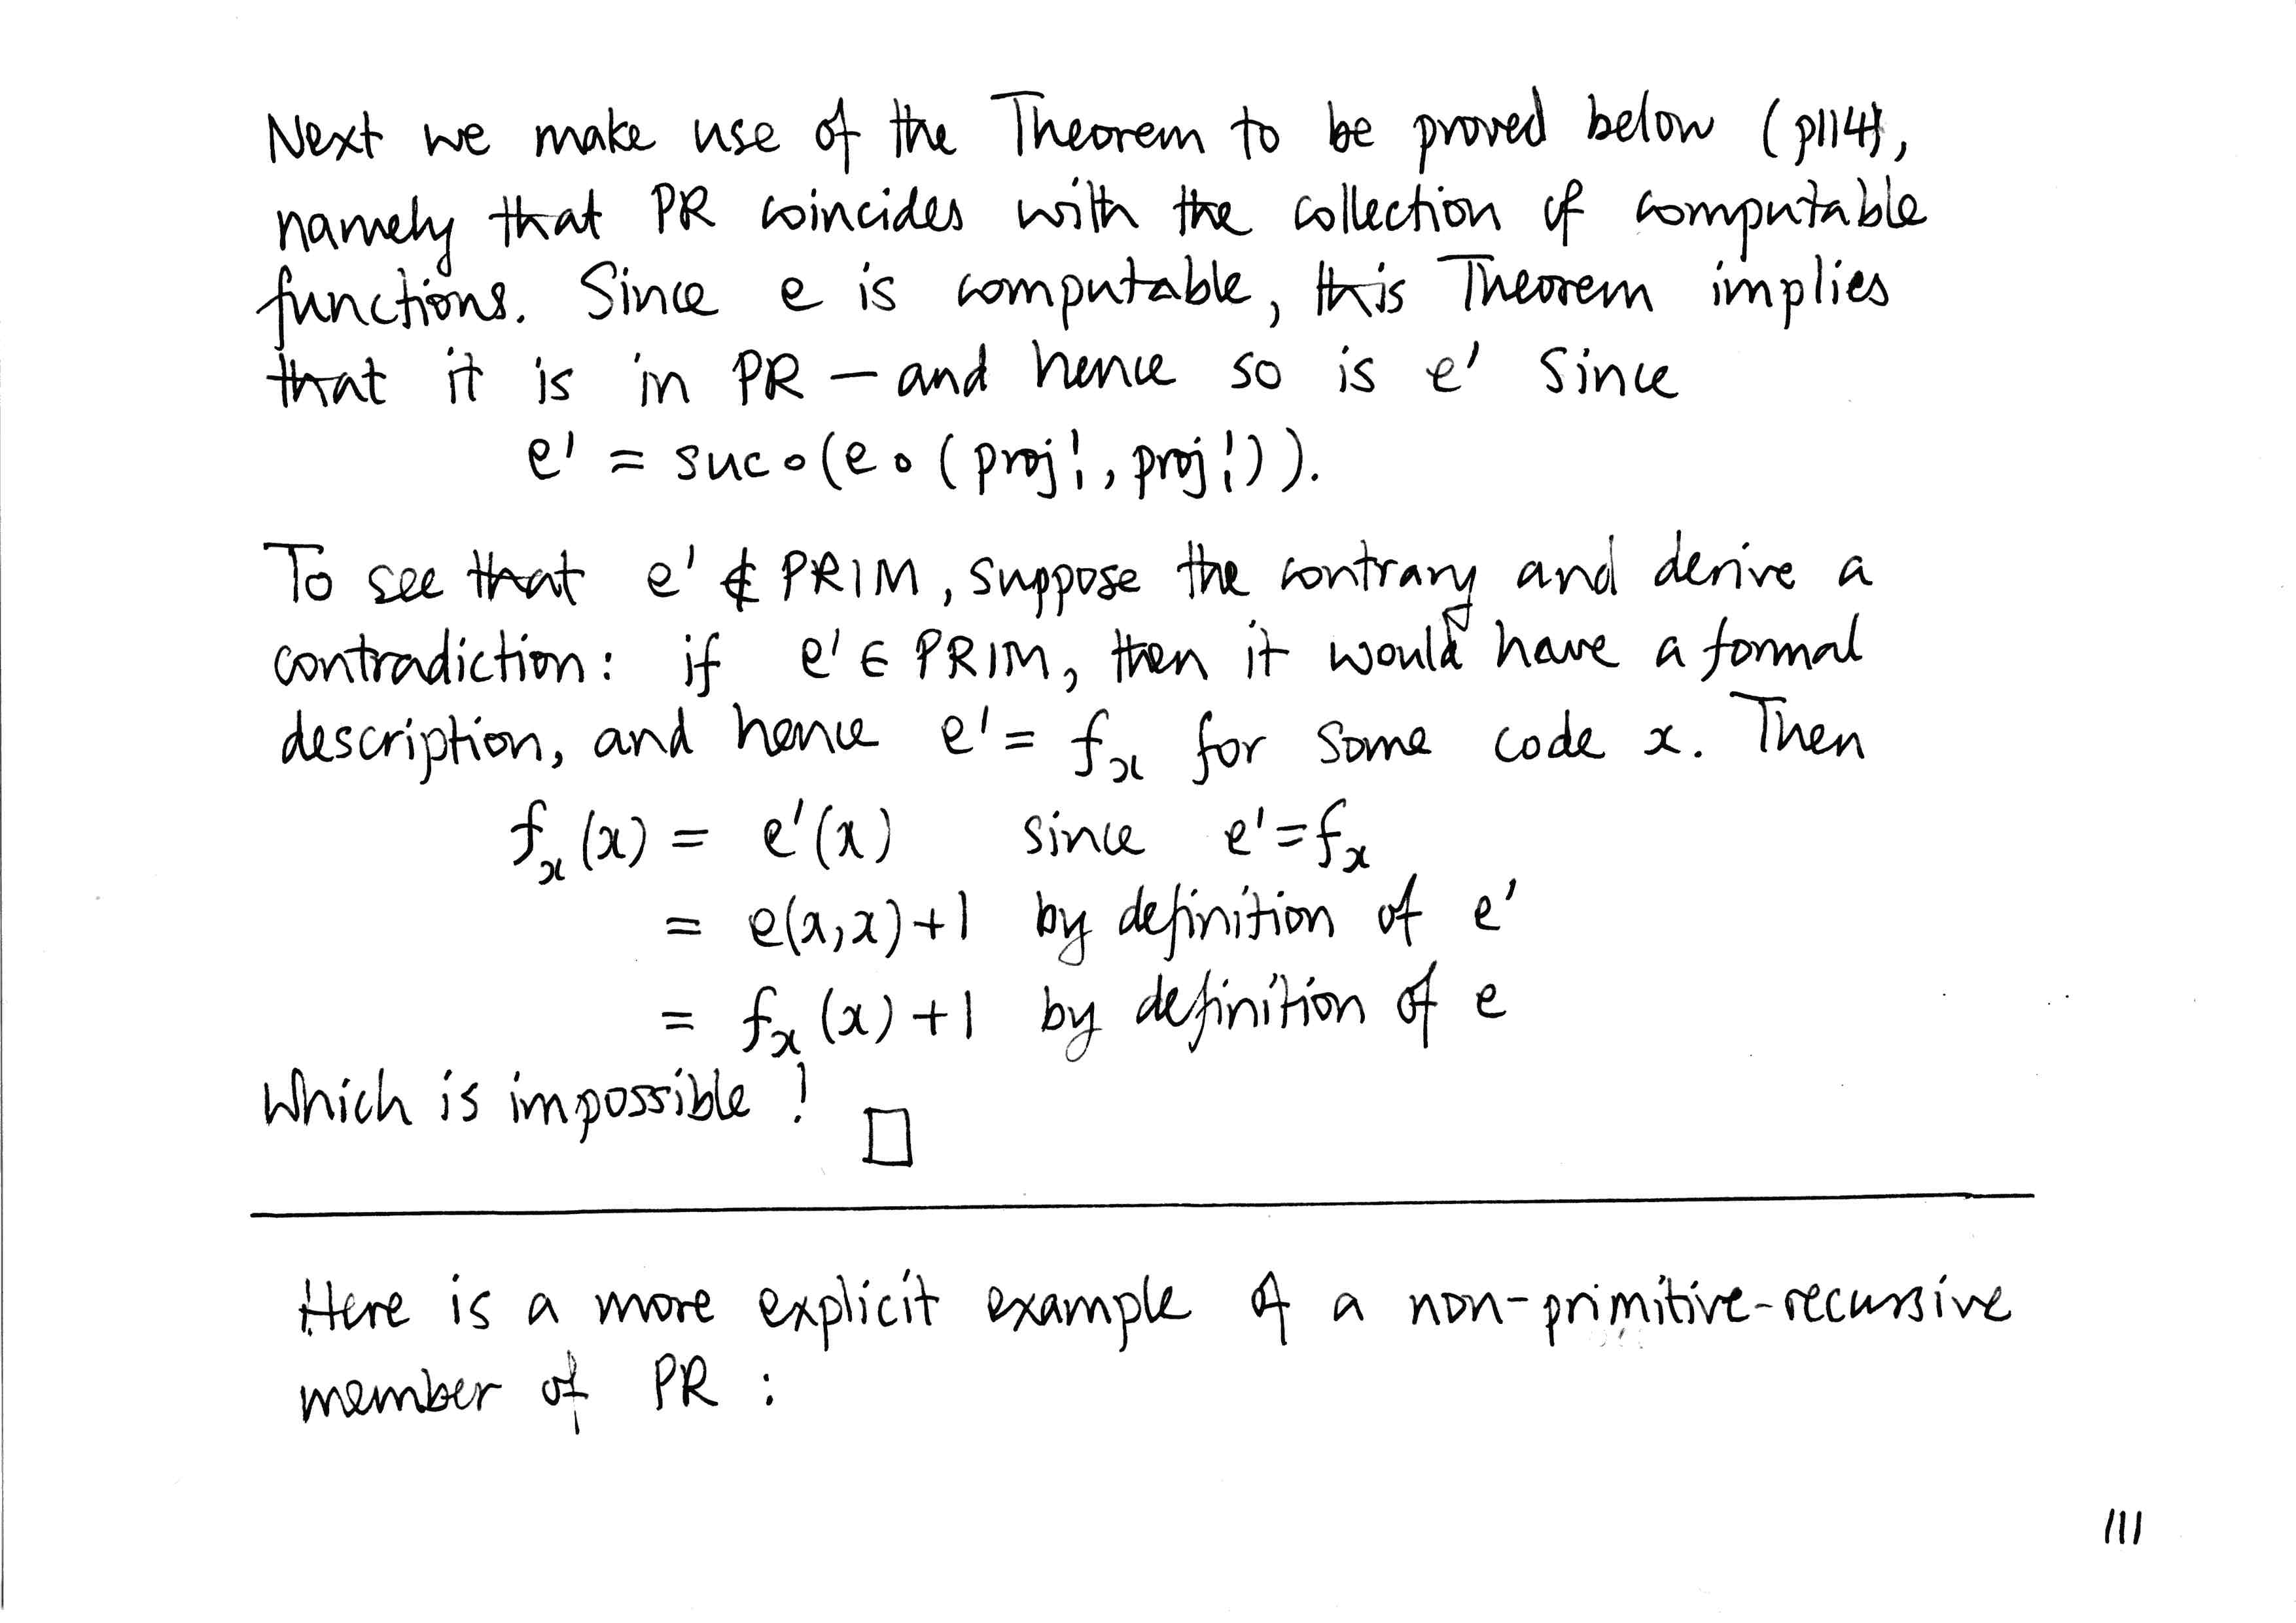 Next we make use of the Theorem to be proved below (p114),
namely that PR coincides with the collection of computable
functions. Since e is computable, this Theorem implies
that it is in PR – and hence so is e' since
e' = suc∘(e∘(proj¹₁, proj¹₁)).
To see that e' ∉ PRIM, suppose the contrary and derive a
contradiction: if e' ∈ PRIM, then it would have a formal
description, and hence e' = fₓ for some code x. Then
fₓ(x) = e'(x) since e'=fₓ
= e(x,x)+1 by definition of e'
= fₓ(x)+1 by definition of e
Which is impossible! □
Here is a more explicit example of a non-primitive-recursive
member of PR :
111